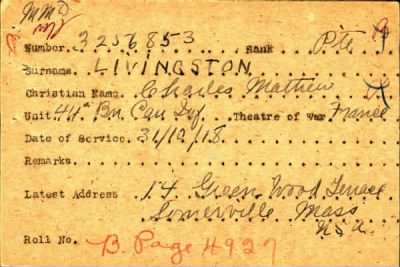 Number. 3256853 Rank Pte
Surname. LIVINGSTON
Christian Name. Charles Mathew
Unit. 44th Bn. Can Inf. Theatre of war France
Date of Service. 31/10/18.
Remarks.
Latest Address 14 Green Wood Terrace
Somerville Mass
U.S.A.
Roll No. B. Page 4927